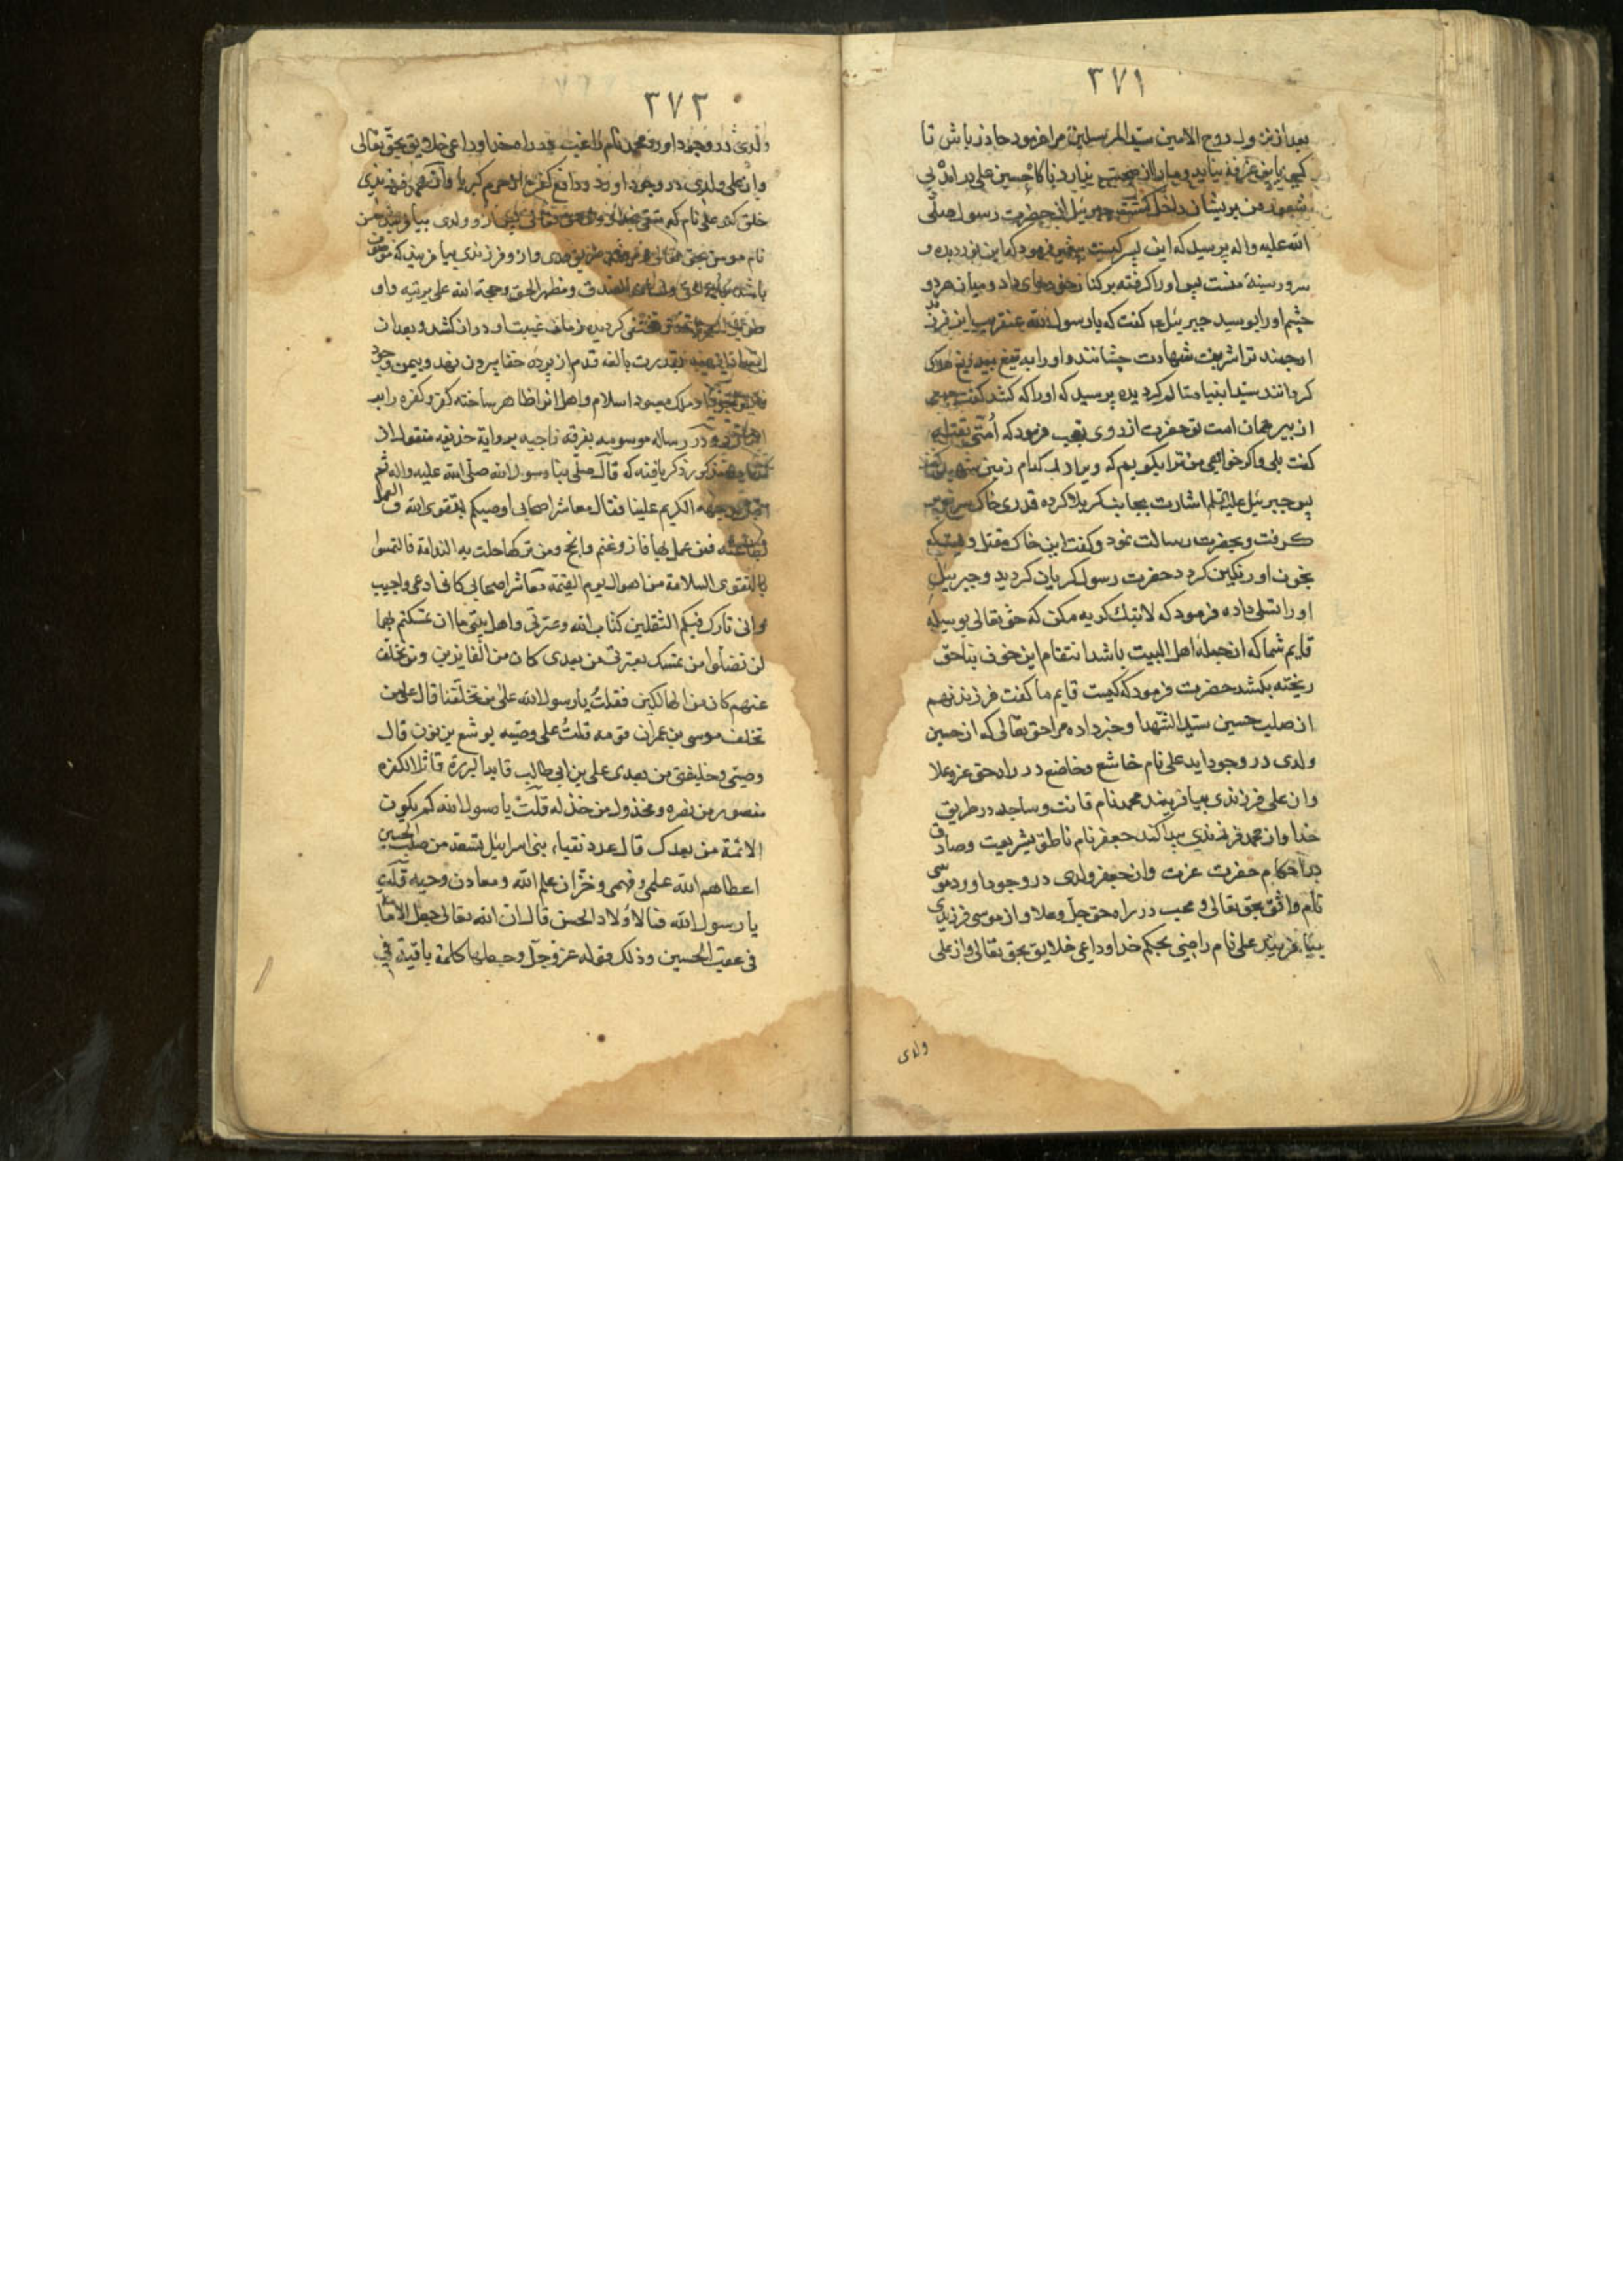 ۳۷۱
بعد از نزول روح الامین سید المرسلین مرا فرمود حاذر باش تا
کسی باین غرفه نیاید و ما را از صحبت باز ندارد ناکاه حسین علی در امد بی
شعور من پریشان داخل کشت جبرئیل از حضرت رسول صلی
الله علیه واله پرسید که این پسر کیست پیغمبر فرمود که این نور دیده و
سرور سینهٔ منست پس او را کرفته بر کنار خود جای داد و میان هر دو
چشم او را بوسید جبرئیل ع کفت که یا رسول الله عنقریب این فرزند
ارجمند ترا شربت شهادت چشانند و او را به تیغ بیدریغ هلاک
کردانند سید انبیا متالم کردیده پرسید که او را که کشد کفت جمعی
از بیرحمان امت تو حضرت از روی تعجب فرمود که اُمّتی تقتله
کفت بلی و اکر خواهی من ترا بکویم که ویرا در کدام زمین شهید کنند
پس جبرئیل علیه السلم اشارت بجانب کربلا کرده قدری خاک سرخ
کرفت و بحضرت رسالت نمود و کفت این خاک مقتل ویست که
بخون او رنکین کردد حضرت رسول کریان کردید و جبرییل
او را تسلی داده فرمود که لا تبک کریه مکن که حق تعالی بوسیلهٔ
قایم شما که از جمله اهل البیت باشد انتقام این خون بناحق
ریخته بکشد حضرت فرمود که کیست قایم ما کفت فرزند نهم
از صلب حسین سید الشهدا و خبر داده مرا حق تعالی که از حسین
ولدی در وجود اید علی نام خاشع و خاضع در راه حق عز و علا
و از علی فرزندی بیافریند محمد نام قانت و ساجد در طریق
خدا و از محمد فرزندی پیدا کند جعفر نام ناطق بشریعت و صادق
در احکام حضرت عزت و از جعفر ولدی در وجود اورد موسی
نام واثق بحق تعالی و محب در راه حق جل و علا و از موسی فرزندی
بیافریند علی نام راضی بحکم خدا و داعی خلایق بحق تعالی و از علی
ولدی
۳۷۲
ولدی در وجود اورد محمد نام راغب در راه خدا و داعی خلایق بحق تعالی
و از علی ولدی در وجود اورد و دافع کفر از حرم کبریا و از محمد فرزندی
خلق کند علی نام که و از و ولدی بیافریند حسن
نام مومن بحق تعالی و و از و فرزندی بیافریند که موصوف
باشد بکلمة الحق و لسان الصدق و مظهر الحق و حجة الله علی بریته و او
کردیده زمان غیبت او دراز کشد و بعد از
بقدرت بالغه قدم از پرده خفا بیرون نهد و بیمن وجود
اسلام و اهل انرا ظاهر ساخته کفر و کفره را بر
در رساله موسومه بفرقه ناجیه بروایة حذیفه منقول از
مذکور ذکر یافته که قال صلی بنا رسول الله صلی الله علیه واله ثم
اقبل بوجهه الکریم علینا فقال معاشر اصحابی اوصیکم بتقوی الله و العمل
بطاعته فمن عمل بها فاز و غنم و انجح و من ترکها حلت به الندامة فالتمسوا
بالتقوی السلامة من اهوال یوم القیمة معاشر اصحابی کانی ادعی و اجیب
و انی تارک فیکم الثقلین کتاب الله و عترتی و اهل بیتی ما ان تمسکتم بهما
لن تضلوا من تمسک بعترتی من بعدی کان من الفایزین و من تخلف
عنهم کان من الهالکین فقلتُ یا رسول الله علی من تخلفنا قال علی من
تخلف موسی بن عمران قومه قلتُ علی وصیه یوشع بن نون قال
وصیی و خلیفتی من بعدی علی بن ابی طالب قاید البررة قاتل الکفره
منصور من نصره و مخذول من خذله قلتُ یا رسول الله کم یکون
الائمة من بعدک قال عدد نقباء بنی اسرائیل تسعة من صلب الحسین
اعطاهم الله علمی و فهمی و خزّان علم الله و معادن وحیه قلتُ
یا رسول الله فما لاولاد الحسن قال ان الله تعالی جعل الامامة
فی عقب الحسین و ذلک قوله عز و جل و جعلها کلمة باقیة فی